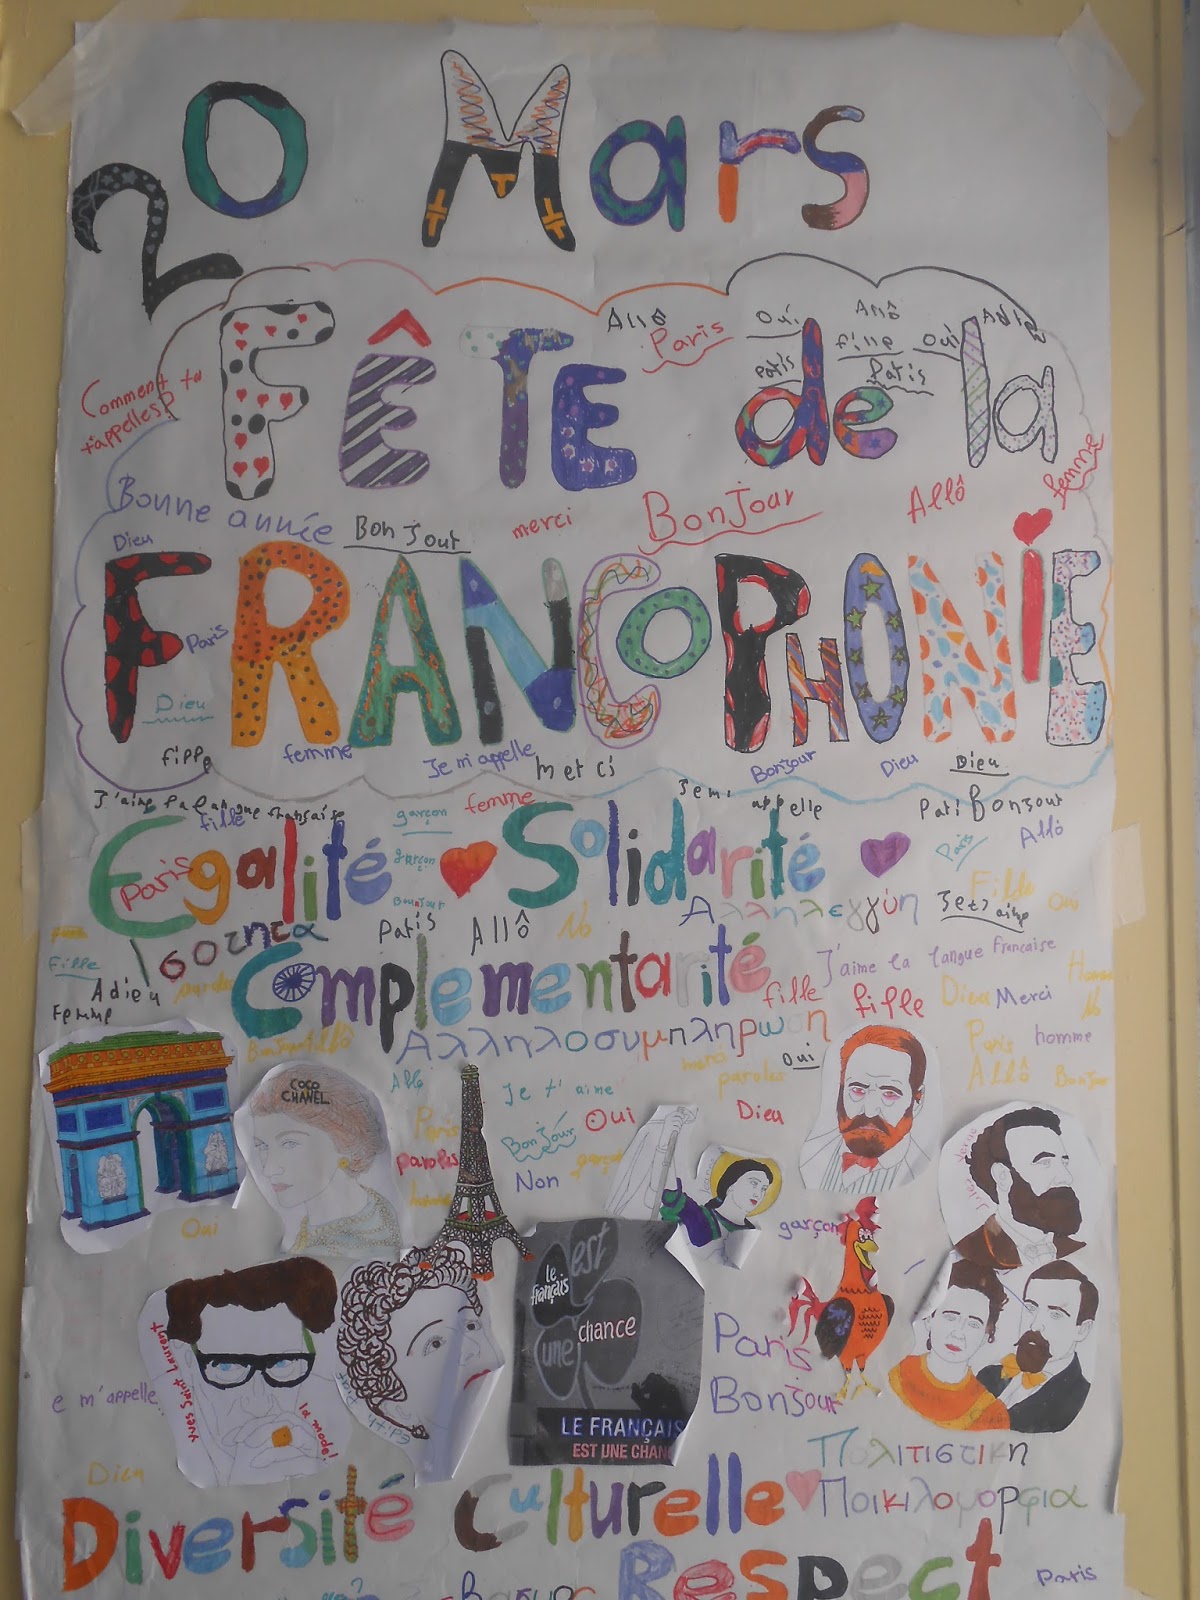 20 Mars
Allô
Paris
Oui
Allô
fille
Oui
Paris
Paris
FÊTE de la
Comment tu
t'appelles?
femme
Bonne année
Bonjour
merci
Bonjour
Allô
Dieu
FRANCOPHONIE
Paris
Dieu
fille
femme
Je m'appelle
merci
Bonjour
Dieu
Dieu
J'aime la langue française
fille
garçon
femme
appelle
Bonjour
Allô
Egalité Solidarité
Paris
garçon
Paris
Bonjour
Ισότητα
Paris
Allô
Αλληλεγγύη
Je t'aime
Oui
fille
Adieu
paroles
femme
Complementarité
J'aime la langue française
fille
fille
Dieu
Merci
Αλληλοσυμπλήρωση
Paris
homme
Allô
Bonjour
merci
paroles
Oui
COCO
CHANEL
Allô
Je t'aime
Paris
Bonjour
Oui
Dieu
paroles
Non
garçon
Oui
garçon
le
français
est
une
chance
LE FRANÇAIS
EST UNE CHANC
Paris
Bonjour
e m'appelle
Yves Saint Laurent
la mode!
Edith Piaf
Dieu
Πολιτιστική
Ποικιλομορφία
Diversité Culturelle
Respect
Paris